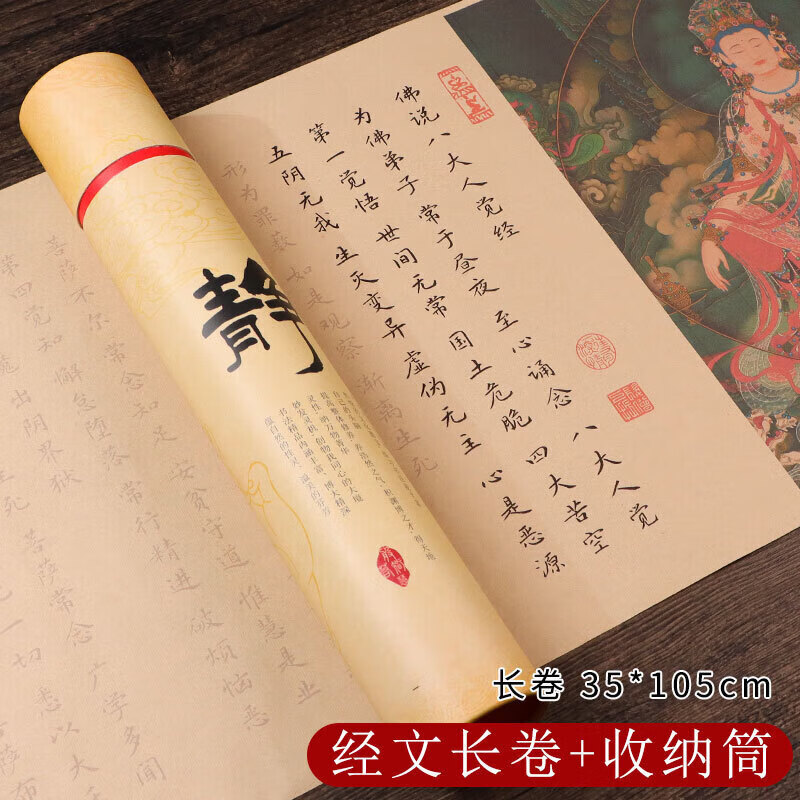 佛说八大人觉经
为佛弟子 常于昼夜 至心诵念 八大人觉
第一觉悟 世间无常 国土危脆 四大苦空
五阴无我 生灭变异 虚伪无主 心是恶源
形为罪薮 如是观察 渐离生死
菩萨不尔 常念知足 安贫守道 惟慧是业
第四觉知 懈怠堕落 常行精进 破烦恼恶
出阴界狱
生死 菩萨常念 广学多闻
一切 悉以大
静
书法精品内涵丰富、博大精深
长卷 35*105cm
经文长卷+收纳筒